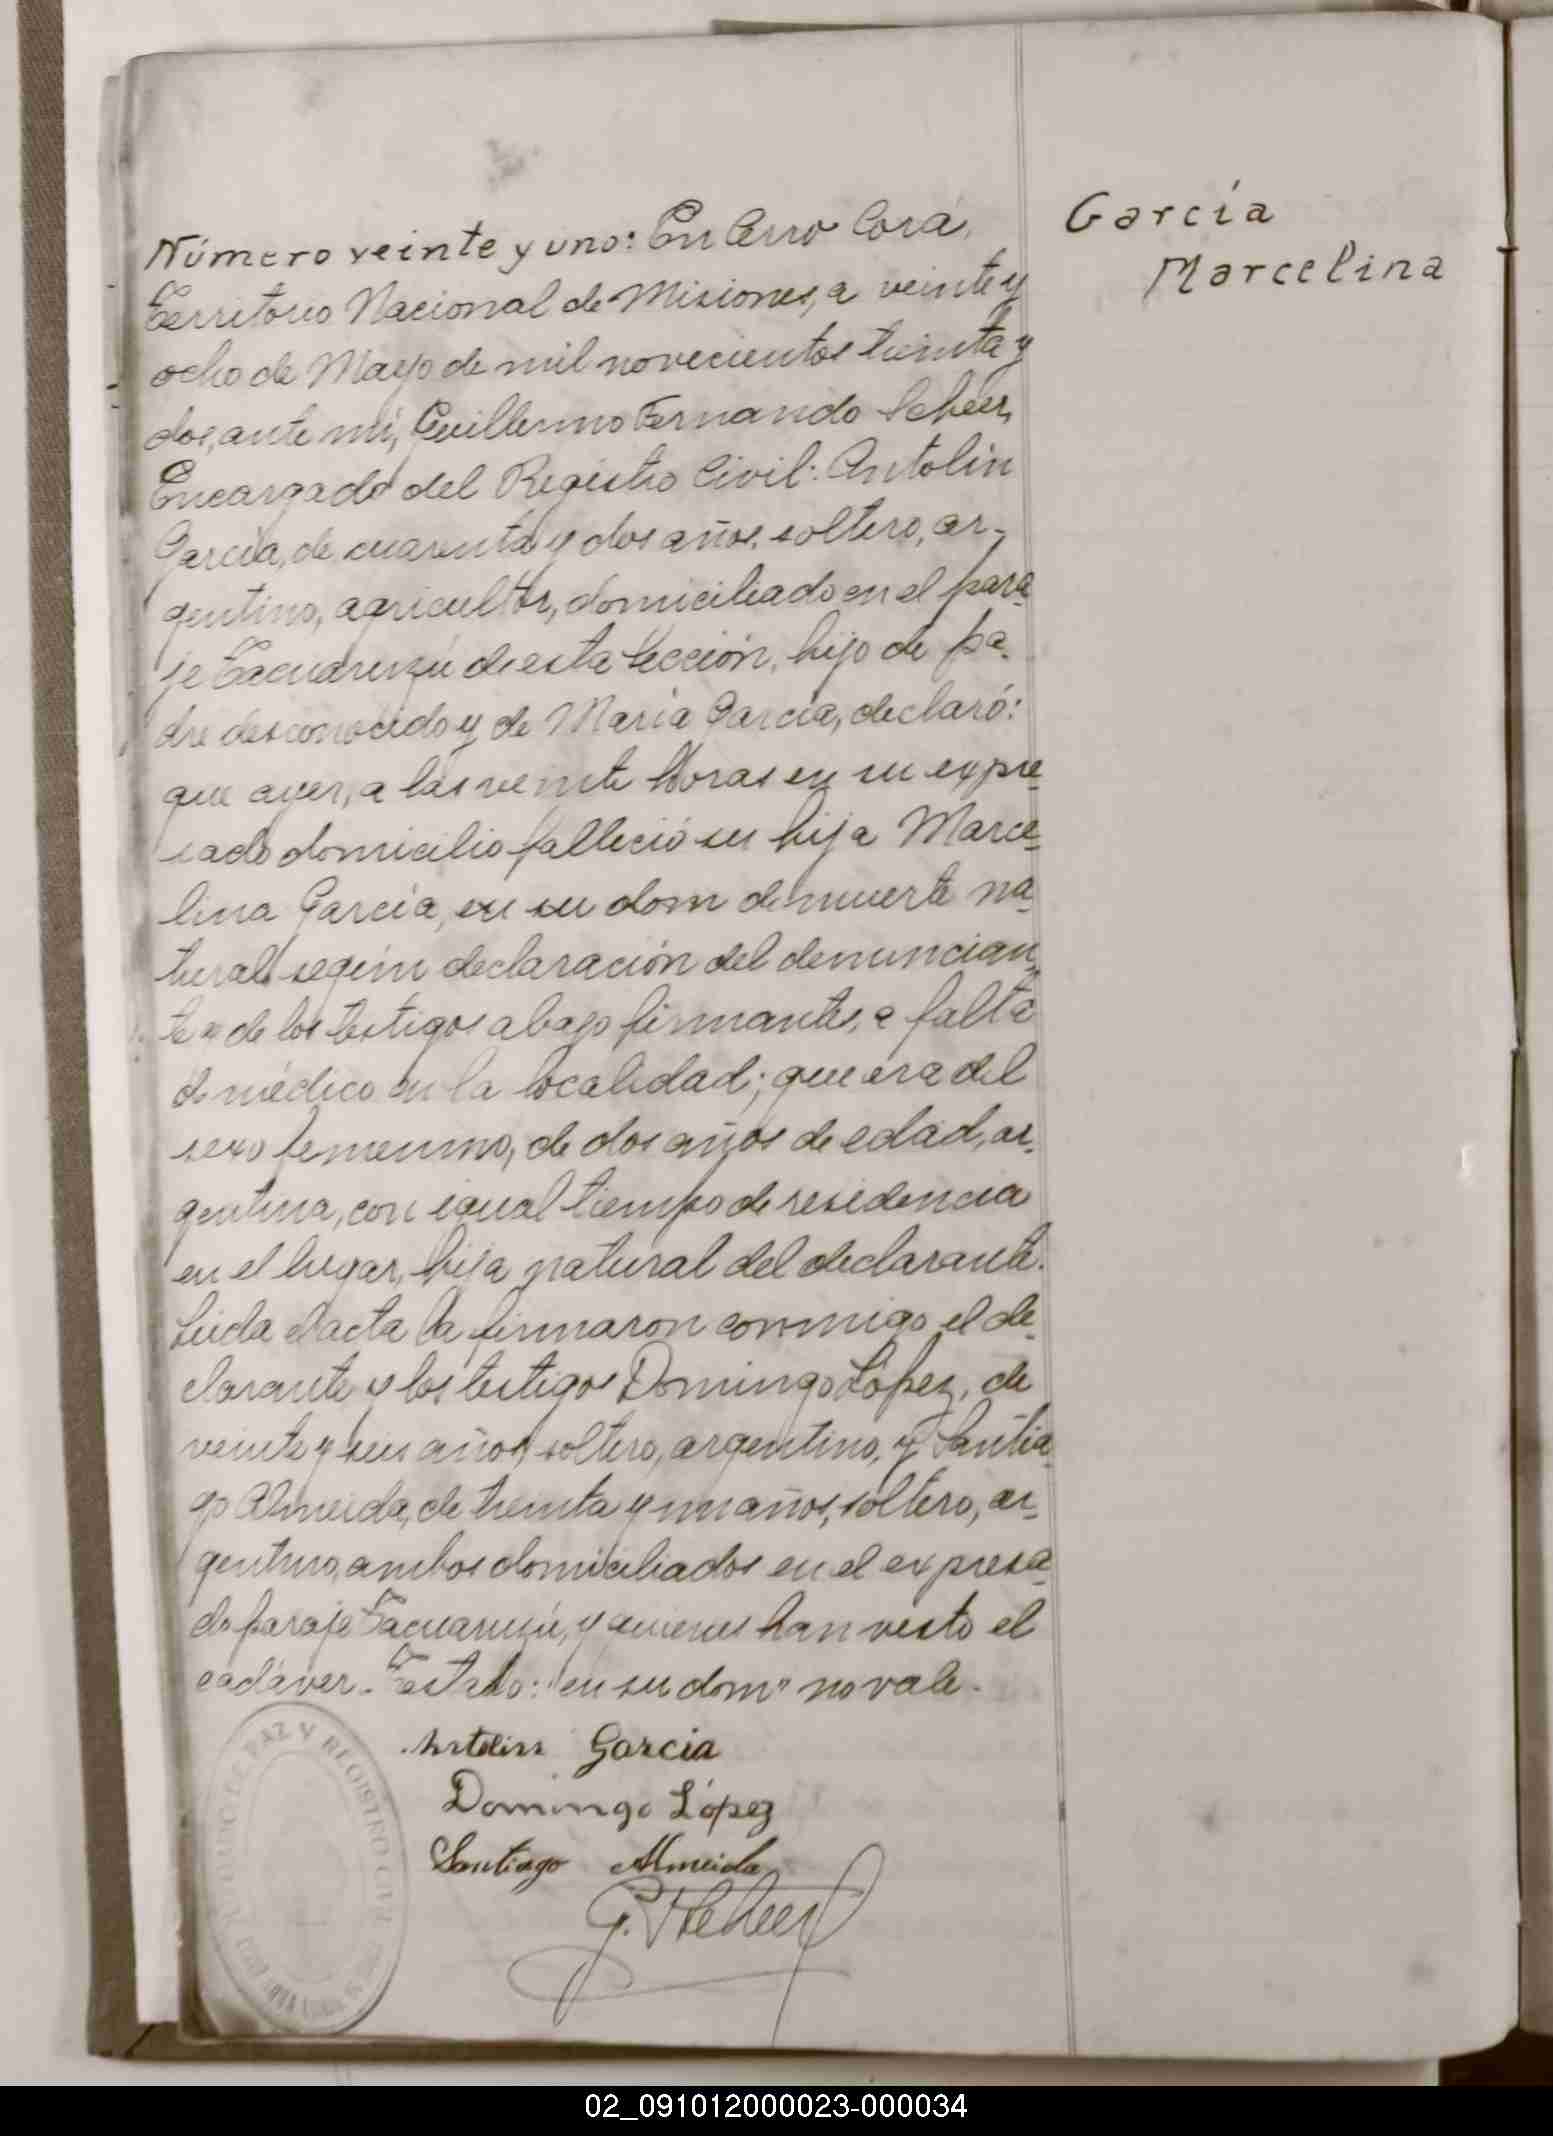 García
Marcelina
Número veinte y uno: En Cerro Corá,
Territorio Nacional de Misiones, a veinte y
ocho de Mayo de mil novecientos treinta y
dos, ante mí, Guillermo Fernando Scheer,
Encargado del Registro Civil: Antolin
García, de cuarenta y dos años, soltero, ar-
gentino, agricultor, domiciliado en el para-
je Tacuaruzú de esta Sección, hijo de pa-
dre desconocido y de María García, declaró:
que ayer, a las veinte horas en su expre-
sado domicilio falleció su hija Marce-
lina García, en su dom de muerte na-
tural según declaración del denuncian-
te y de los testigos abajo firmantes, a falta
de médico en la localidad; que era del
sexo femenino, de dos años de edad, ar-
gentina, con igual tiempo de residencia
en el lugar, hija natural del declarante.
Leída el acta la firmaron conmigo el de-
clarante y los testigos Domingo López, de
veinte y seis años, soltero, argentino, y Santia-
go Almeida, de treinta y un años, soltero, ar-
gentino, ambos domiciliados en el expresa-
do paraje Tacuaruzú, y quienes han visto el
cadáver. Testado: en su domº no vale.
Antolin Garcia
Domingo López
Santiago Almeida
G. Scheer
PAZ Y REGISTRO CIVIL
02_091012000023-000034